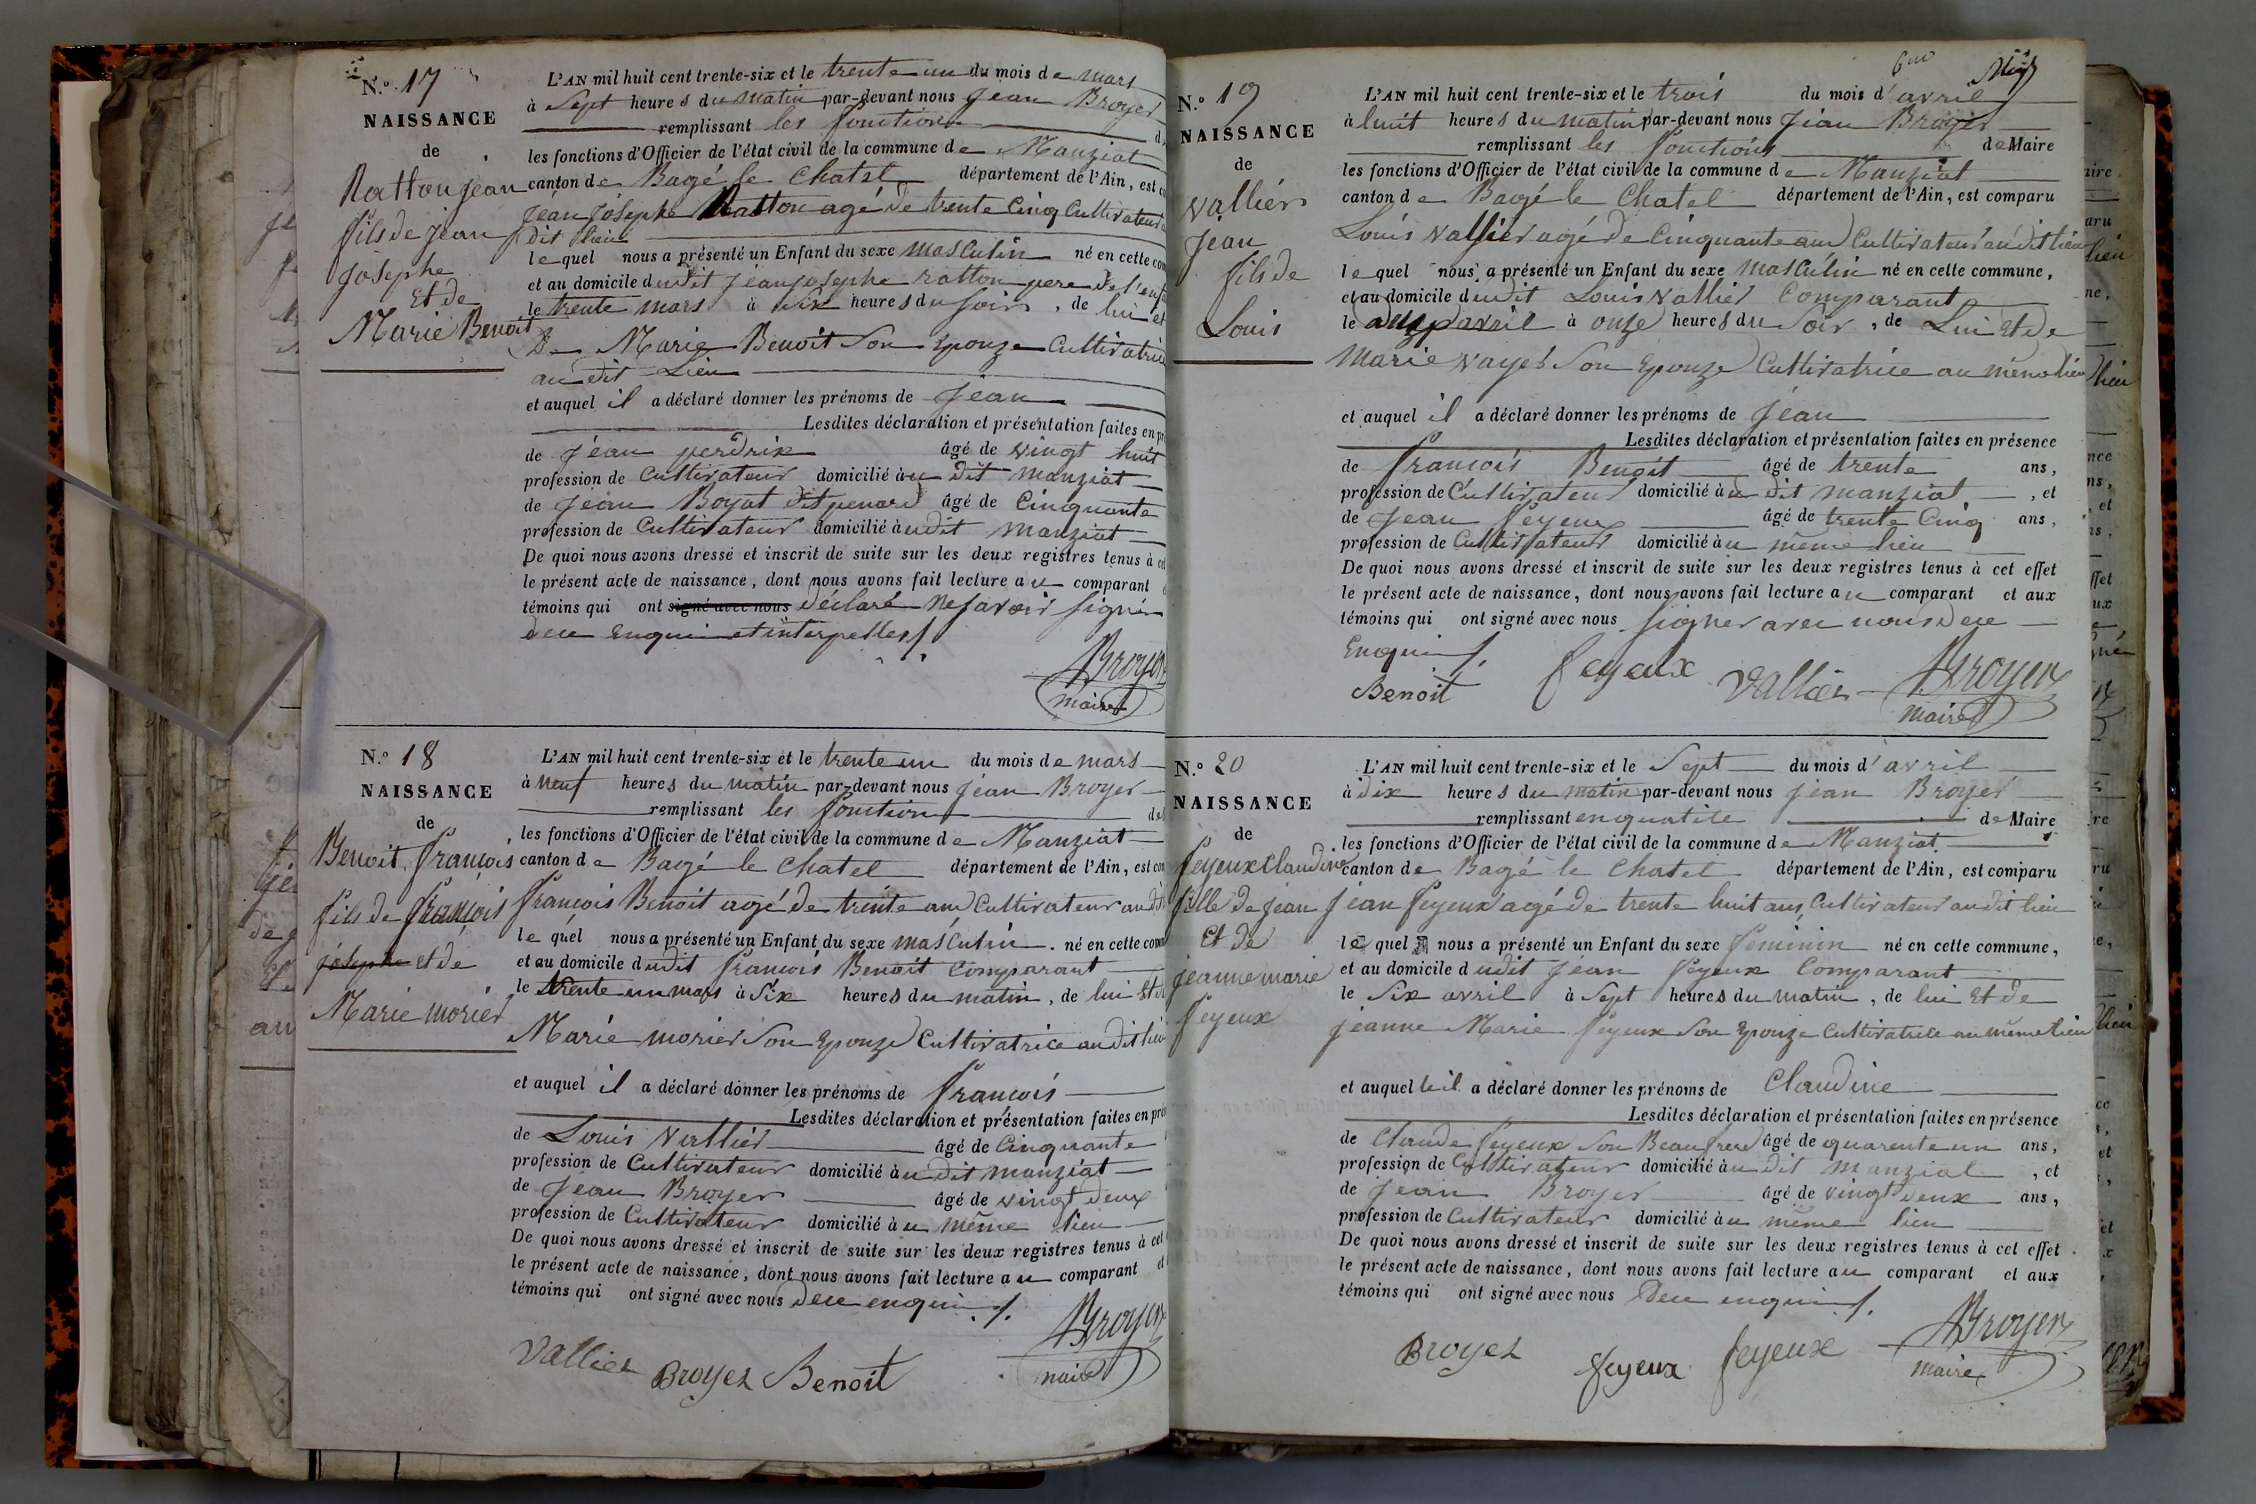 N.º 17
NAISSANCE
de
Ratton Jean
fils de Jean
Josephe
Et de
Marie Benoit
L'AN mil huit cent trente-six et le trente un du mois de mars
à Sept heures du matin par-devant nous Jean Broyer
remplissant les fonction
les fonctions d'Officier de l'état civil de la commune de Manziat
canton de Bagé le Chatel département de l'Ain, est
Jean Josephe Ratton agé de trente Cinq Cultivateur
dit lieu
lequel nous a présenté un Enfant du sexe masculin né en cette
et au domicile dudit Jean Josephe ratton pere de l'
le trente mars à six heures du soir, de lui et
De Marie Benoit Son Epouze Cultivatrice
au dit Lieu
et auquel il a déclaré donner les prénoms de Jean
Lesdites déclaration et présentation faites en
de Jean perdrix âgé de vingt huit
profession de Cultivateur domicilié au dit manziat
de Jean Boyat dit penard âgé de Cinquante
profession de Cultivateur domicilié audit manziat
De quoi nous avons dressé et inscrit de suite sur les deux registres tenus à
le présent acte de naissance, dont nous avons fait lecture au comparant
témoins qui ont signé avec nous déclaré ne savoir signer
dece Enquis et interpelles /.
Broyer
maire
N.º 18
NAISSANCE
de
Benoit françois
fils de françois
josephe et de
Marie morier
L'AN mil huit cent trente-six et le trente un du mois de mars
à neuf heures du matin par-devant nous Jean Broyer
remplissant les fonction
les fonctions d'Officier de l'état civil de la commune de Manziat
canton de Bagé le Chatel département de l'Ain, est
françois Benoit agé de trente ans Cultivateur au
lequel nous a présenté un Enfant du sexe masculin. né en cette
et au domicile dudit françois Benoit Comparant
le trente un mars à Six heures du matin, de lui Et
Marie morier Son Epouze Cultivatrice au dit
et auquel il a déclaré donner les prénoms de françois
Lesdites déclaration et présentation faites en
de Louis Vallier âgé de Cinquante
profession de Cultivateur domicilié au dit manziat
de Jean Broyer âgé de vingt deux
profession de Cultivateur domicilié au même lieu
De quoi nous avons dressé et inscrit de suite sur les deux registres tenus à cet
le présent acte de naissance, dont nous avons fait lecture au comparant
témoins qui ont signé avec nous dece enquis /.
Vallier Broyer Benoit
Broyer
maire
N.º 19
NAISSANCE
de
vallier
Jean
fils de
Louis
L'AN mil huit cent trente-six et le trois du mois d'avril
à huit heures du matin par-devant nous Jean Broyer
remplissant les fonctions de Maire
les fonctions d'Officier de l'état civil de la commune de Manziat
canton de Bagé le Chatel département de l'Ain, est comparu
Louis vallier agé de Cinquante ans Cultivateur au dit lieu
lequel nous a présenté un Enfant du sexe masculin né en cette commune,
et au domicile dudit Louis Vallier Comparant
le deux avril à onze heures du Soir, de Lui Et de
Marie vayer Son Epouze Cultivatrice au même lieu
et auquel il a déclaré donner les prénoms de Jean
Lesdites déclaration et présentation faites en présence
de françois Benoit âgé de trente ans,
profession de Cultivateur domicilié au dit manziat, et
de Jean feyeux âgé de trente Cinq ans,
profession de Cultivateur domicilié au même lieu
De quoi nous avons dressé et inscrit de suite sur les deux registres tenus à cet effet
le présent acte de naissance, dont nous avons fait lecture au comparant et aux
témoins qui ont signé avec nous signer avec nous dece
Enquis /.
Benoit feyeux Vallier Broyer
maire
N.º 20
NAISSANCE
de
feyeux Claudine
fille de Jean
Et de
jeanne marie
feyeux
L'AN mil huit cent trente-six et le Sept du mois d'avril
à dix heures du matin par-devant nous Jean Broyer
remplissant en quatite de Maire
les fonctions d'Officier de l'état civil de la commune de Manziat
canton de Bagé le Chatel département de l'Ain, est comparu
Jean feyeux agé de trente huit ans Cultivateur au dit lieu
lequel nous a présenté un Enfant du sexe feminin né en cette commune,
et au domicile dudit Jean feyeux Comparant
le Six avril à Sept heures du matin, de lui Et de
jeanne Marie feyeux Son Epouze Cultivatrice au même lieu
et auquel il a déclaré donner les prénoms de Claudine
Lesdites déclaration et présentation faites en présence
de Claude feyeux Son Beaufrere âgé de quarente un ans,
profession de Cultivateur domicilié au dit manziat, et
de Jean Broyer âgé de vingt deux ans,
profession de Cultivateur domicilié au même lieu
De quoi nous avons dressé et inscrit de suite sur les deux registres tenus à cet effet
le présent acte de naissance, dont nous avons fait lecture au comparant et aux
témoins qui ont signé avec nous Dece enquis /.
Broyer feyeux feyeux Broyer
maire